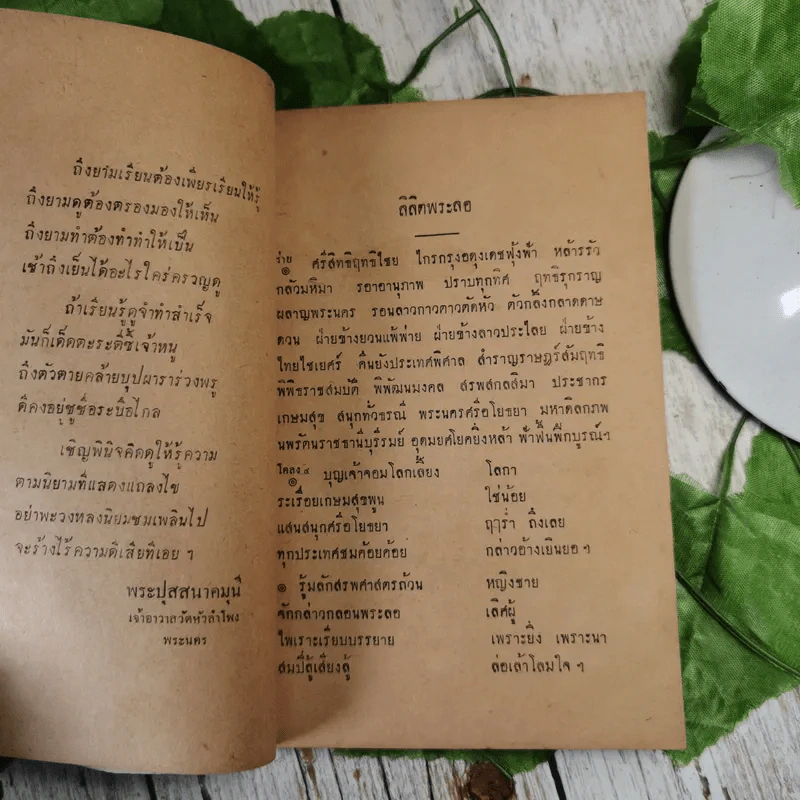 ถึงยามเรียนต้องเพียรเรียนให้รู้
ถึงยามดูต้องตรองมองให้เห็น
ถึงยามทำต้องทำทำให้เป็น
เช้าถึงเย็นได้อะไรใคร่ครวญดู
ถ้าเรียนรู้ดูจำทำสำเร็จ
มันก็เด็ดตะระตีซี้เจ้าหนู
ถึงตัวตายคล้ายบุปผาราร่วงพรู
ดีคงอยู่ชูชื่อระบือไกล
เชิญพินิจคิดดูให้รู้ความ
ตามนิยามที่แสดงแถลงไข
อย่าพะวงหลงนิยมชมเพลินไป
จะร้างไร้ความดีเสียทีเอย ฯ
พระปุสสนาคมุนี
เจ้าอาวาสวัดหัวลำโพง
พระนคร
ลิลิตพระลอ
ร่าย
๑ ศรีสิทธิฤทธิไชย ไกรกรุงอดุงเดชฟุ้งฟ้า หล้ารรัว
กลัวมหิมา รอาอานุภาพ ปราบทุกทิศ ฤทธิรุกราญ
ผลาญพระนคร รอนลาวกาวตาวตัดหัว ตัวกลิ้งกลาดดาษ
ดวน ฝ่ายข้างยวนแพ้พ่าย ฝ่ายข้างลาวประไลย ฝ่ายข้าง
ไทยไชเยศร์ คืนยังประเทศพิศาล สำราญราษฎร์สัมฤทธิ
พิพิธราชสมบัติ พิพัฒนมงคล สรพสกลสีมา ประชากร
เกษมสุข สนุกทั่วธรณี พระนครศรีอโยธยา มหาดิลกภพ
นพรัตนราชธานีบุรีรมย์ อุดมยศโยคยิ่งหล้า ฟ้าฟื้นฟึกบูรณ์ฯ
โคลง ๔
๑ บุญเจ้าจอมโลกเลี้ยง โลกา
ระเรื่อยเกษมสุขพูน ใช่น้อย
แสนสนุกศรีอโยธยา ฤๅร่ำ ถึงเลย
ทุกประเทศชมค้อยค้อย กล่าวอ้างเยินยอ ฯ
๑ รู้มลักสรพศาสตรถ้วน หญิงชาย
จักกล่าวกลอนพระลอ เลิศผู้
ไพเราะเรียบบรรยาย เพราะยิ่ง เพราะนา
สมปี่ลู้เสียงลู้ ล่อเล้าโลมใจ ฯ